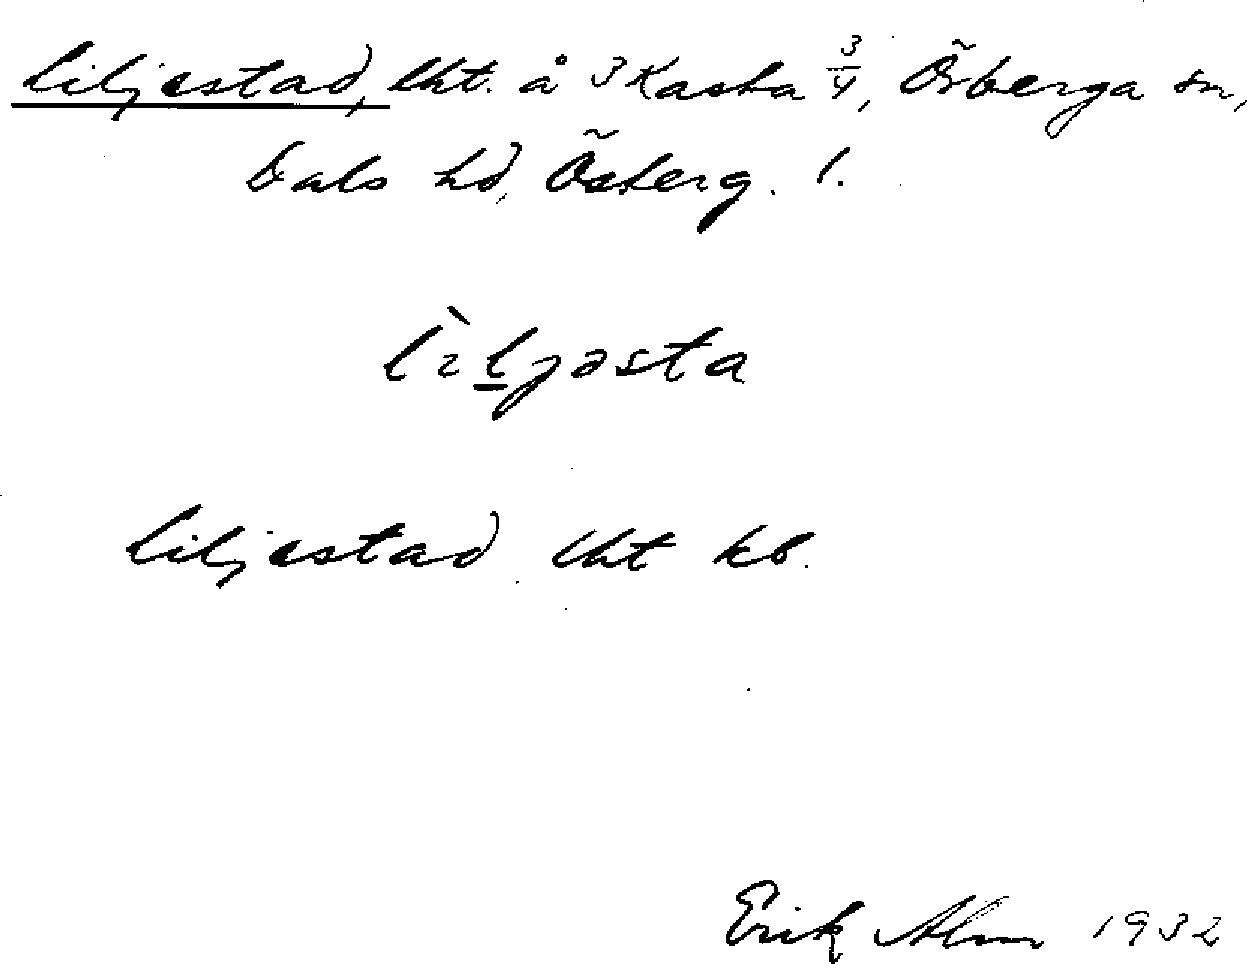 Liljestad, lht. å 3 Kasta 3/4, Örberga sn,
Dals hd, Österg. l.
lìljəsta
Liljestad lht kb.
Erik Alm 1932